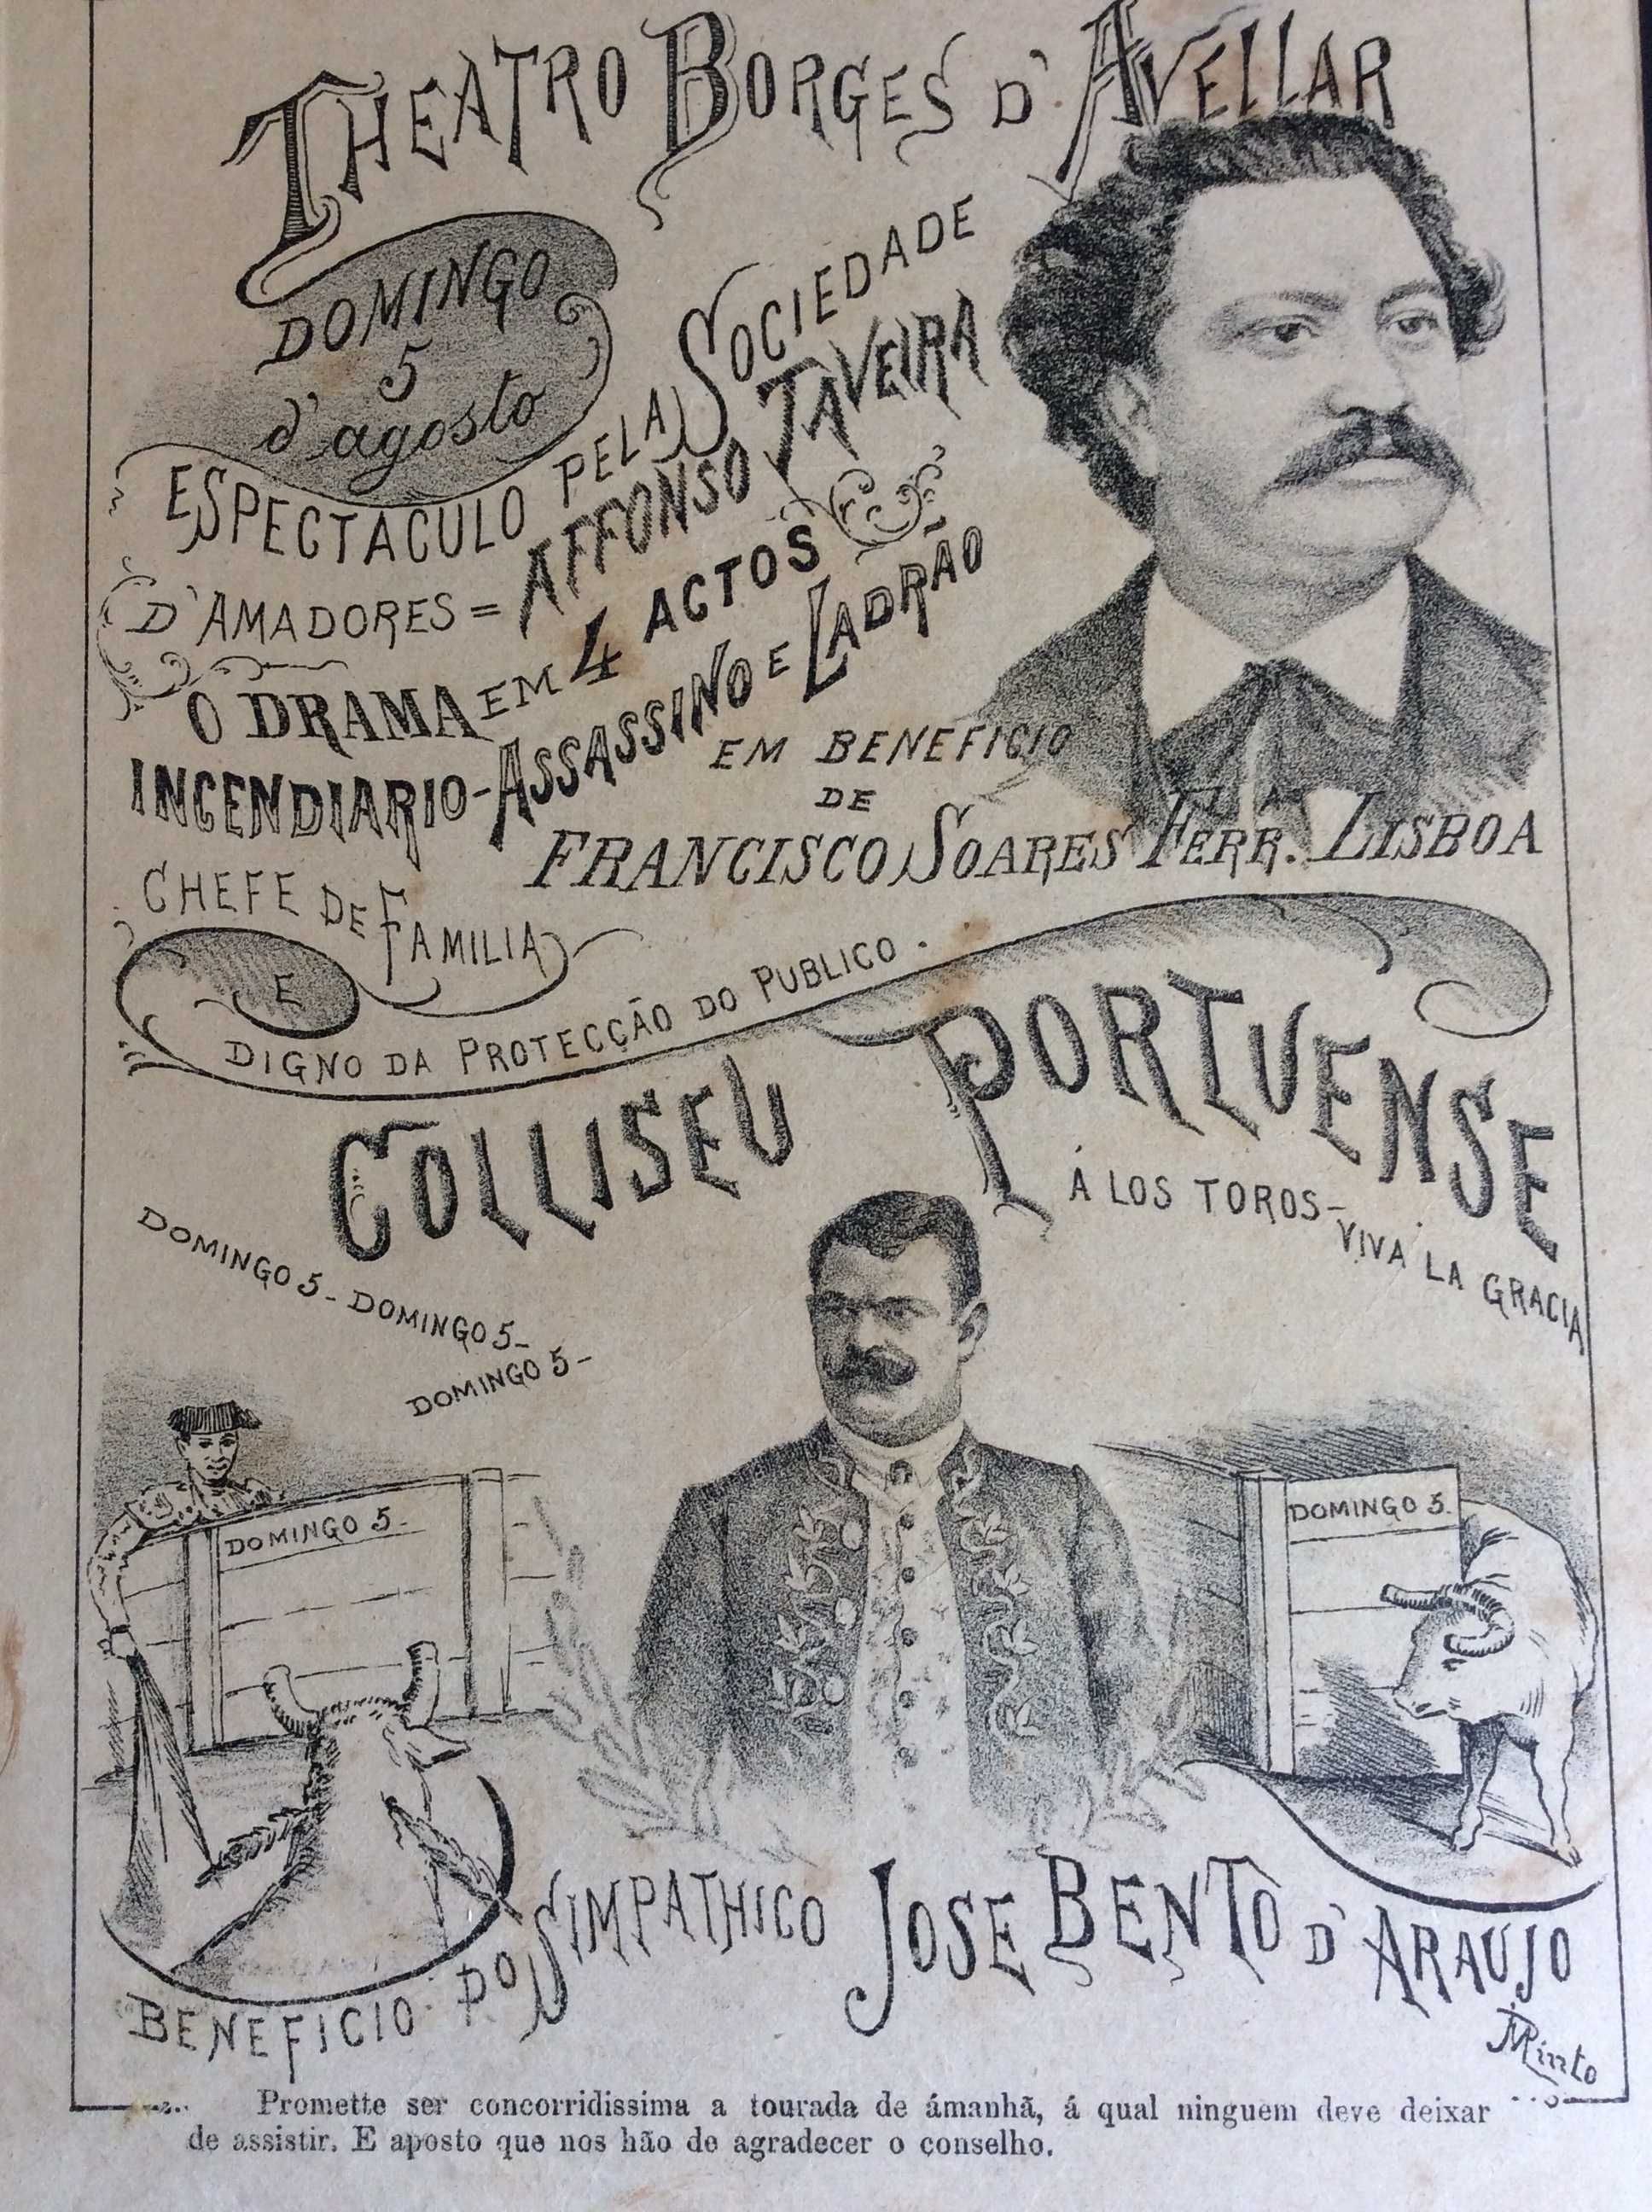 THEATRO BORGES D'AVELLAR
DOMINGO
5
d'agosto
ESPECTACULO PELA SOCIEDADE
D'AMADORES = AFFONSO TAVEIRA
O DRAMA EM 4 ACTOS
INCENDIARIO-ASSASSINO E LADRÃO
EM BENEFICIO
DE
FRANCISCO SOARES FERR. LISBOA
CHEFE DE FAMILIA
E
DIGNO DA PROTECÇÃO DO PUBLICO.
COLLISEU PORTUENSE
Á LOS TOROS-VIVA LA GRACIA
DOMINGO 5-DOMINGO 5-
DOMINGO 5-
DOMINGO 5-
DOMINGO 5.
BENEFICIO DO SIMPATHICO JOSE BENTO D'ARAUJO
Promette ser concorridissima a tourada de ámanhã, á qual ninguem deve deixar
de assistir. E aposto que nos hão de agradecer o conselho.